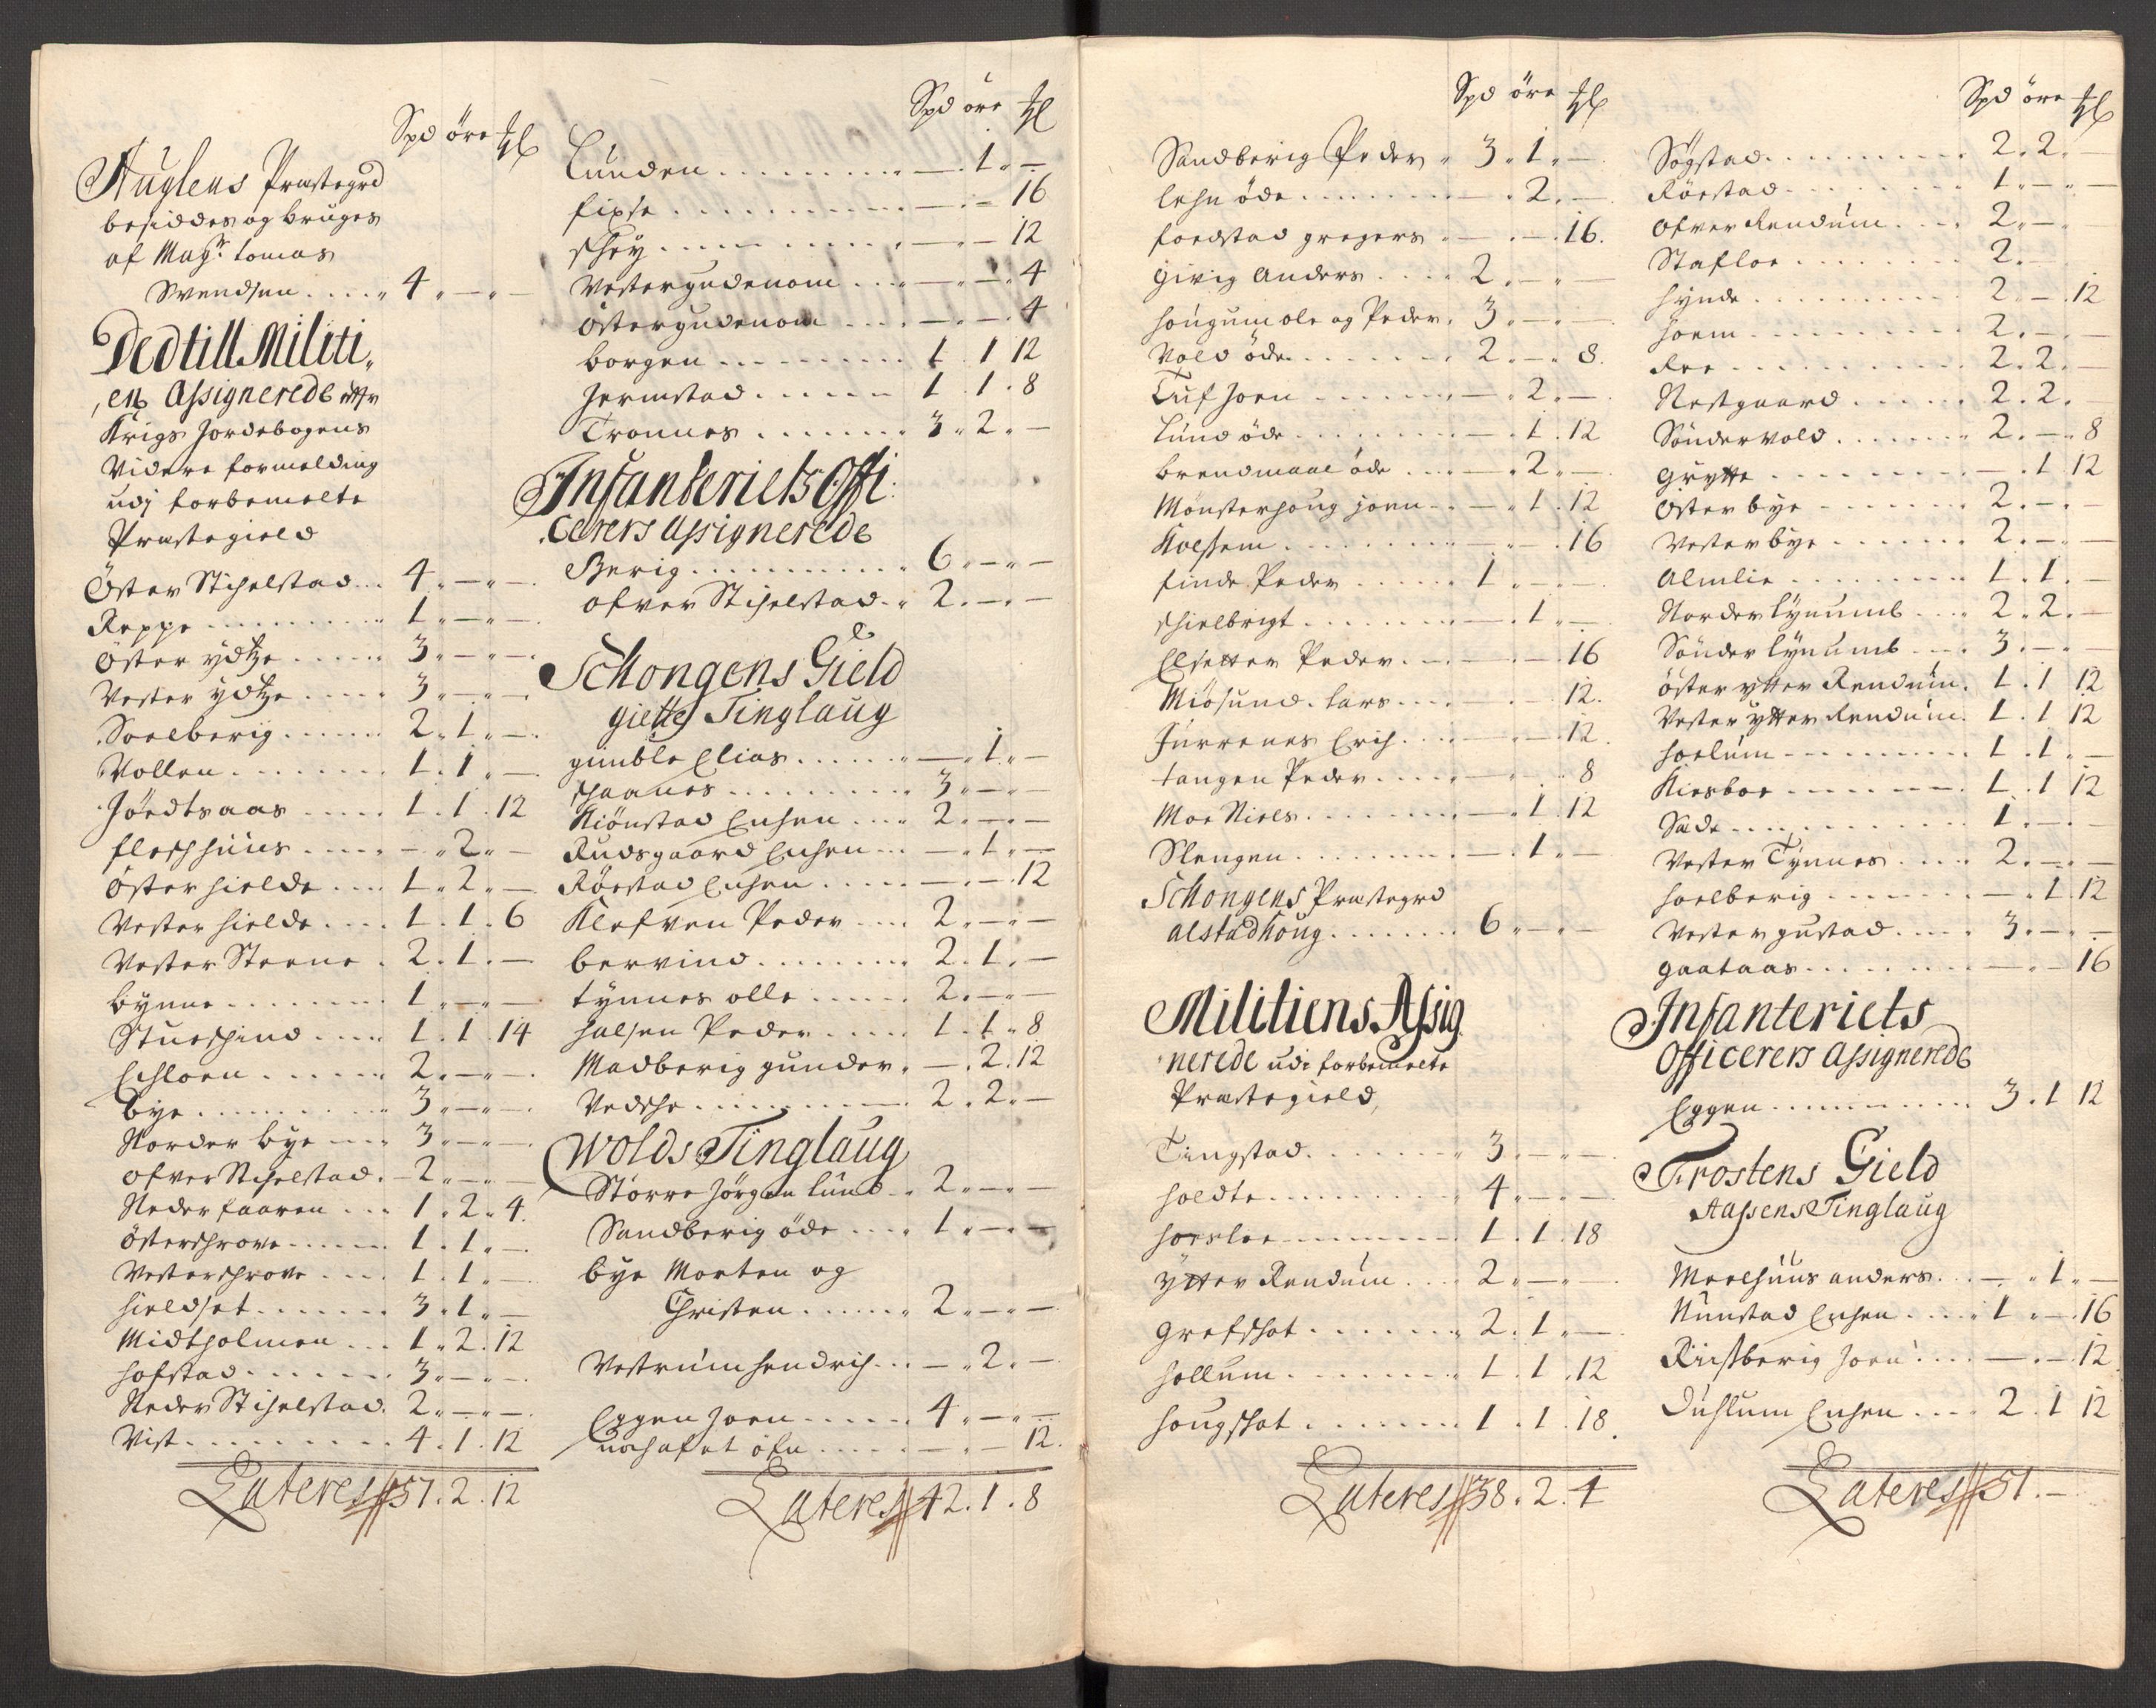 Spd öre ℔
Auglens Præstegrd
besiddes og bruges
af Magr. tomas
Svendsen .... 4 . — . —
Ded till Militi„
„en Assignerede
Krigs Jordebogens
Videre formelding
udj forbemelte
Præstegield
Öster Stichelstad .. 4 . — . —
Reppe ........ 1 . — . —
Öster ydtze ..... 3 . — . —
Vester ydtze .... 3 . — . —
Soelberig ...... 2 . 1 . —
Vollen ....... 1 . 1 . —
Jördtsaas ..... 1 . 1 . 12
fleschhuus ..... — . 2 . —
Öster hielde .... 1 . 2 . —
Vester hielde .... 1 . 1 . 6
Vester Steene . 2 . 1 . —
bynne ........ 1 . — . —
Stueschind .... 1 . 1 . 14
Echloen ...... 2 . — . —
bye ......... 3 . — . —
Norder bye ... 3 . — . —
ofver Stichelstad . 2 . — . —
Neder faaren ... 1 . 2 . 4
österschrove .... 1 . 1 . —
Vesterschrove ... 1 . 1 . —
hieldset ....... 3 . 1 . —
Midtholmen ... 1 . 2 . 12
hofstad ...... 3 . — . —
Neder Stichelstad . 2 . — . —
Vist ......... 4 . 1 . 12
Lateres 57 . 2 . 12
Spd öre ℔
Lunden ......... — . 1 . —
fixse .......... — . — 16
schey .......... — . — 12
Vestergudenom ... — . — . 4
östergudenom .... — . — . 4
borgen ......... 1 . 1 12
Jermstad ...... 1 . 1 . 8
Tronnes ....... 3 . 2 . —
Infanteriets Offi:
cerers Assignerede
Berig .......... 6 . — . —
ofver Stichelstad .. 2 . — . —
Schongens Gield
giette Tinglaug
gimble Elias ...... — . 1 . —
schaanes ........ 3 . — . —
Kiönstad Enchen ... 2 . — . —
Rudsgaard Enchen ... — . 1 . —
Röestad Enchen ..... — . — . 12
Klefven Peder .... 2 . — . —
bervind ........ 2 . 1 . —
tynnes olle ..... 2 . — . —
halsen Peder ..... 1 . 1 . 8
Madberig gunder . — . 2 . 12
Vedsche ......... 2 . 2 . —
Wolds Tinglaug
Större Jörgen Lund . 2 . — . —
Sandberig öde .... 1 . — . —
bye Morten og
Christen ...... 2 . — . —
Vestrum hendrich ... — . 2 . —
Eggen Joen ..... 4 . — . —
..... — . — 12
Lateres 42 . 1 . 8
Spd öre ℔
Sandberig Peder . 3 . 1 . —
lehn öde ....... — . 2 . —
foedstad gregers . — . — . 16
givig Anders .... 2 . — . —
hougum ole og Peder . 3 . — . —
Vold öde ....... 2 . — . 8
Tuf Joen ...... — . 2 . —
Lund öde ....... — . 1 . 12
brendmaal öde ... — . 2 . —
Mönsterhoug joen .. — . 1 . 12
Kolsem ........ — . — . 16
finde Peder ..... 1 . — . —
schielbrigt ....... — . 1 . —
Elsetter Peder .. — . — . 16
Miösund . lars ... — . — 12
Jurrenes Erich ... — . — 12
tangen Peder .... — . — 8
Moe Niels ....... — . 1 . 12
Slengen ........ — . 1 . —
Schongens Præstegrd
alstadhoug ...... 6 . — . —
Militiens Assig
nerede udi forbemelte
Præstegield
Tingstad ....... 3 . — . —
holdte ......... 4 . — . —
hoesloe ........ 1 . 1 . 18
ytter Rendum ... 2 . — . —
Grefschot ...... 2 . 1 . —
hollum ........ 1 . 1 . 12
hougschot ....... 1 . 1 . 18
Lateres 38 . 2 . 4
Spd öre ℔
Sögstad .......... 2 . 2 . —
Röestad ......... 1 . — . —
ofver Rendum .... 2 . — .
Stafloe ......... 2 . —
hynde .......... 2 . — . 12
hoem .......... 2 . — . —
Ree ........... 2 . 2 . —
Nestgaard ...... 2 . 2 . —
Söndervold ....... 2 . — . 8
Grytte .......... — . 1 12
öster bye ........ 2 . — . —
Vester bye ...... 2 . — . —
Almlie ......... 1 . 1 . —
Norder lynumb ... 2 . 2 . —
Sönder lynumb ... 3 . — . —
öster ytter Rendum . 1 . 1 12
Vester ytter Rendum . 1 . 1 12
hoelum ......... 1 . 1 . —
Kiesboe ....... 1 . 1 12
Sade .......... 1 . — . —
Vester Tynnes .... 2 . — . —
hoelberig ....... — . 1 . 12
Vester gustad .... 3 . — . —
gaataas ........ — . — 16
Infanteriets
Officerers Assignerede
Eggen .......... 3 . 1 12
Frostens Gield
Aassens Tinglaug
Moelhuus anders ... — . 1 . —
Nunstad Enchen .... 1 . — . 16
Rissberig Joen .... — . — . 12
Duhlum Enchen .... 2 . 1 12
Lateres 51 . —